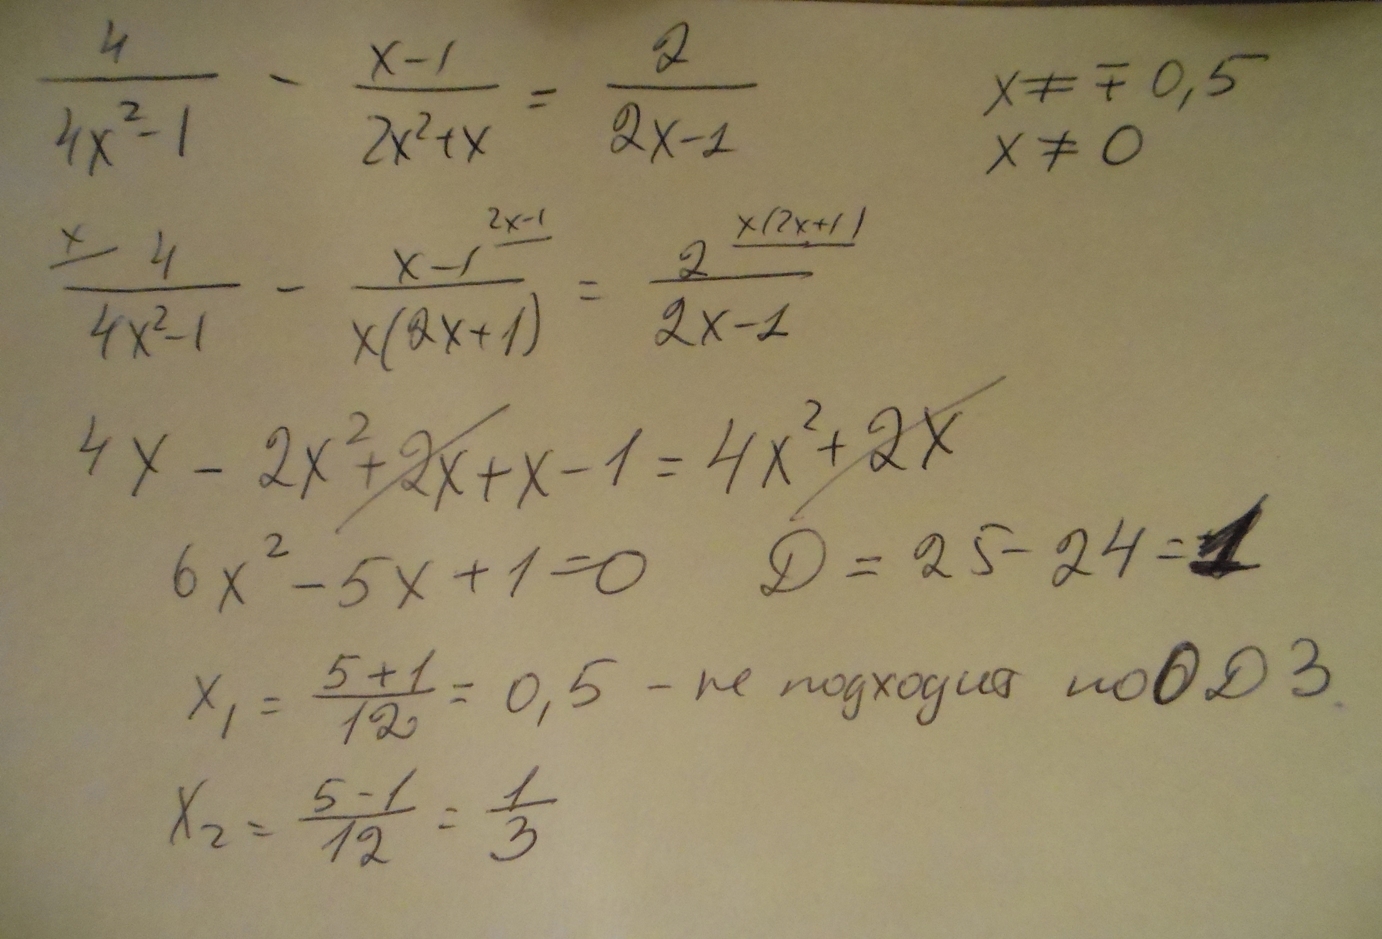 4/(4x²-1) - (x-1)/(2x²+x) = 2/(2x-1) x ≠ ∓ 0,5
x ≠ 0
x 4/(4x²-1) - (x-1)/(x(2x+1)) 2x-1 = 2/(2x-1) x(2x+1)
4x - 2x² + 2x + x - 1 = 4x² + 2x
6x² - 5x + 1 = 0 D = 25 - 24 = 1
x₁ = (5+1)/12 = 0,5 - не подходит по ОДЗ
x₂ = (5-1)/12 = 1/3